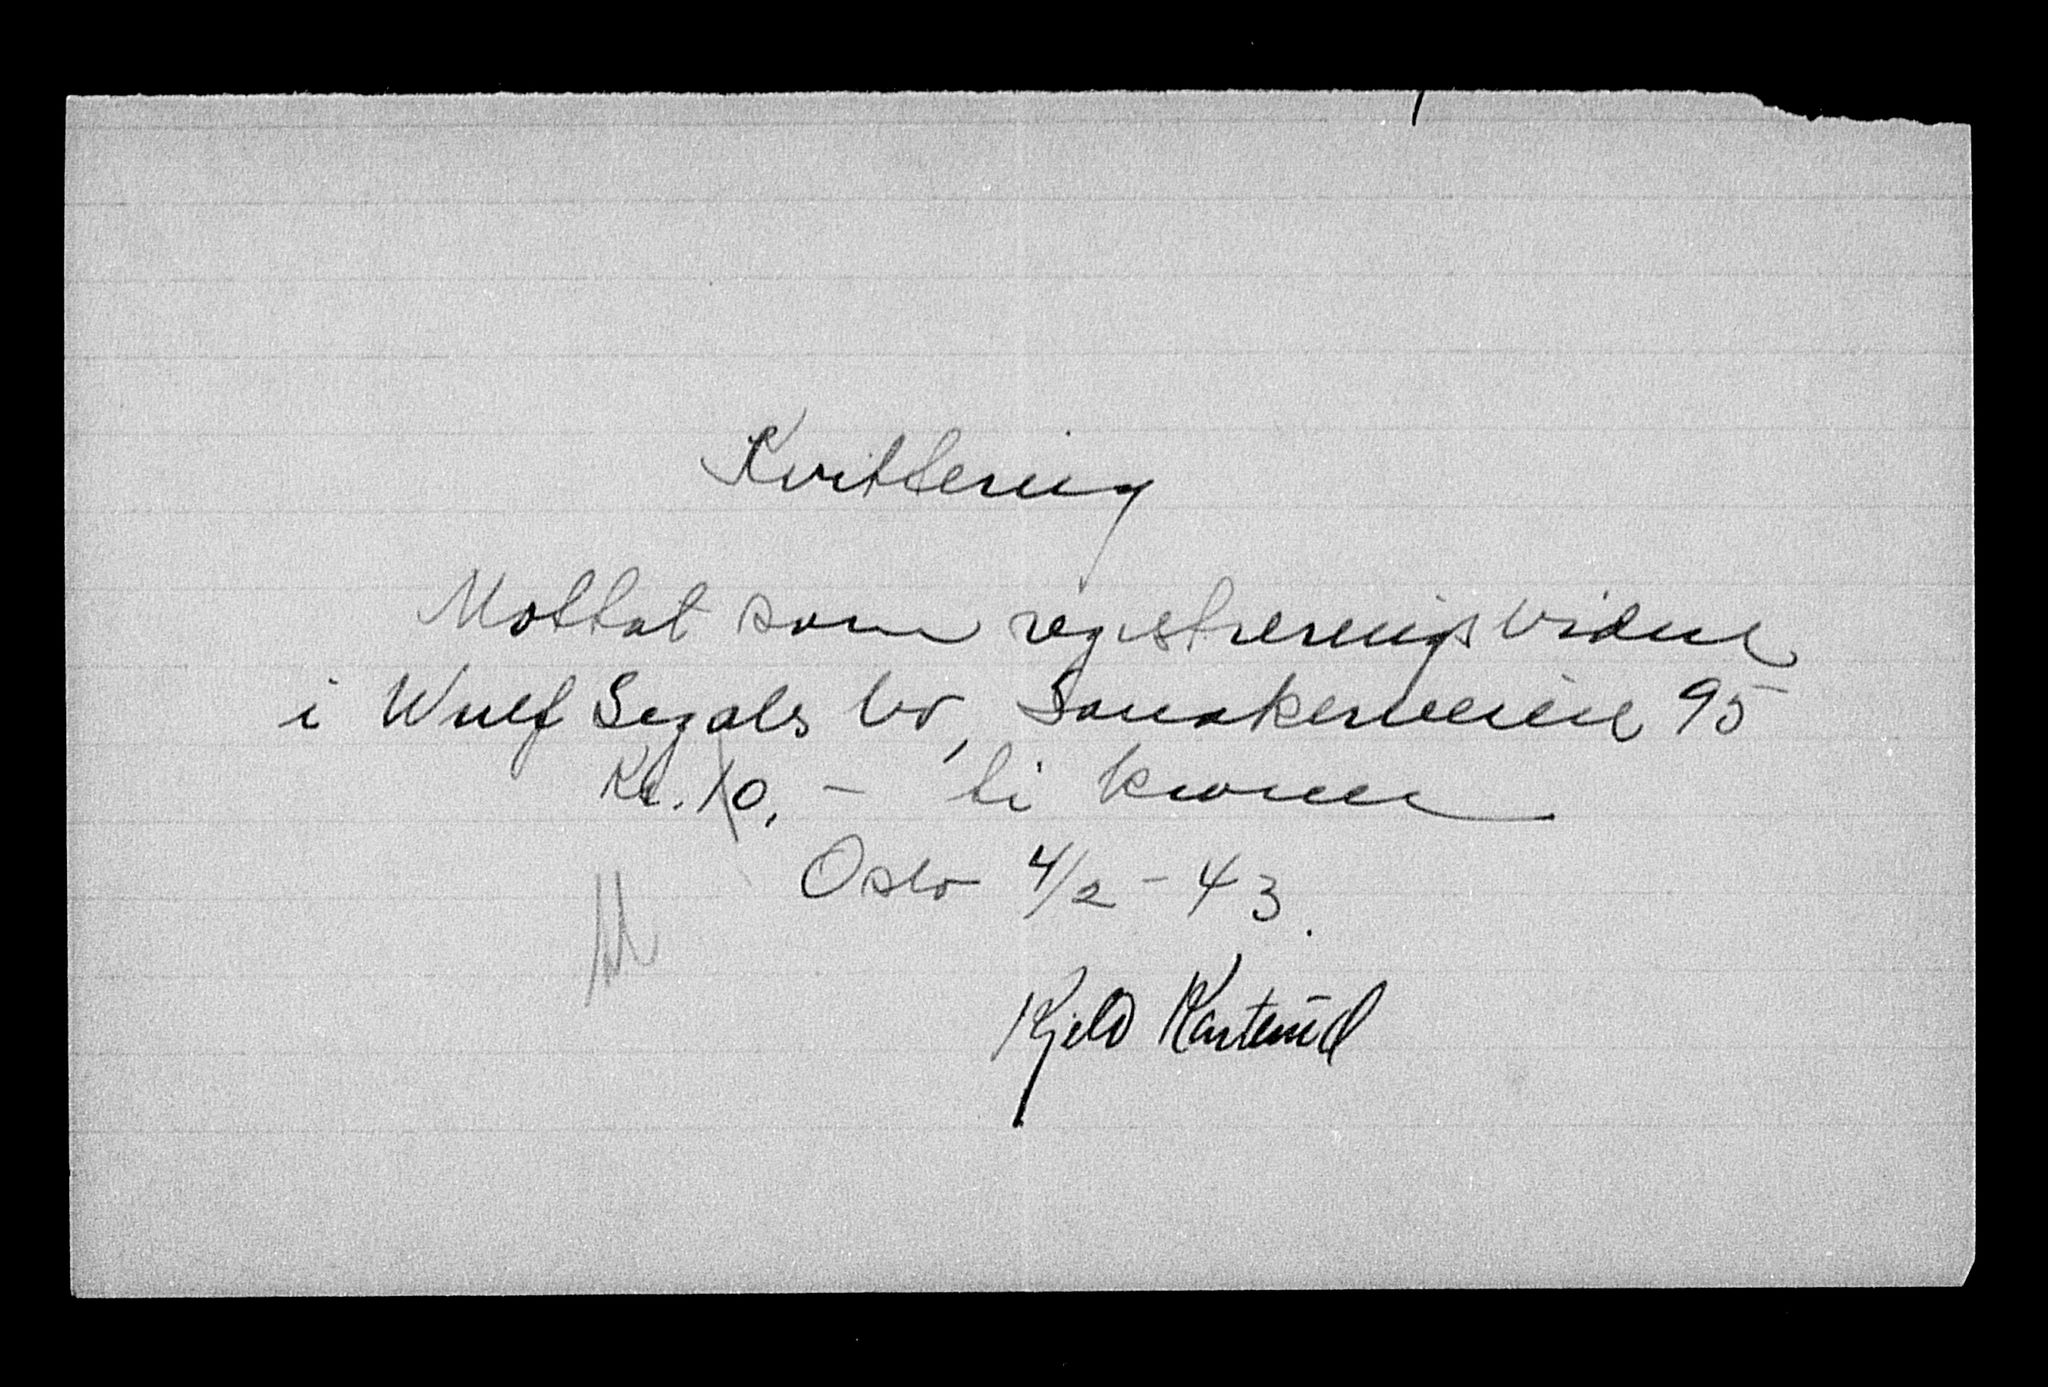 Kvittering
Mottat som registreringsvidne
i Wulf Segals bo, Sanakerveien 95
Kr. 10,- ti kroner
Oslo 4/2-43.
Kjeld